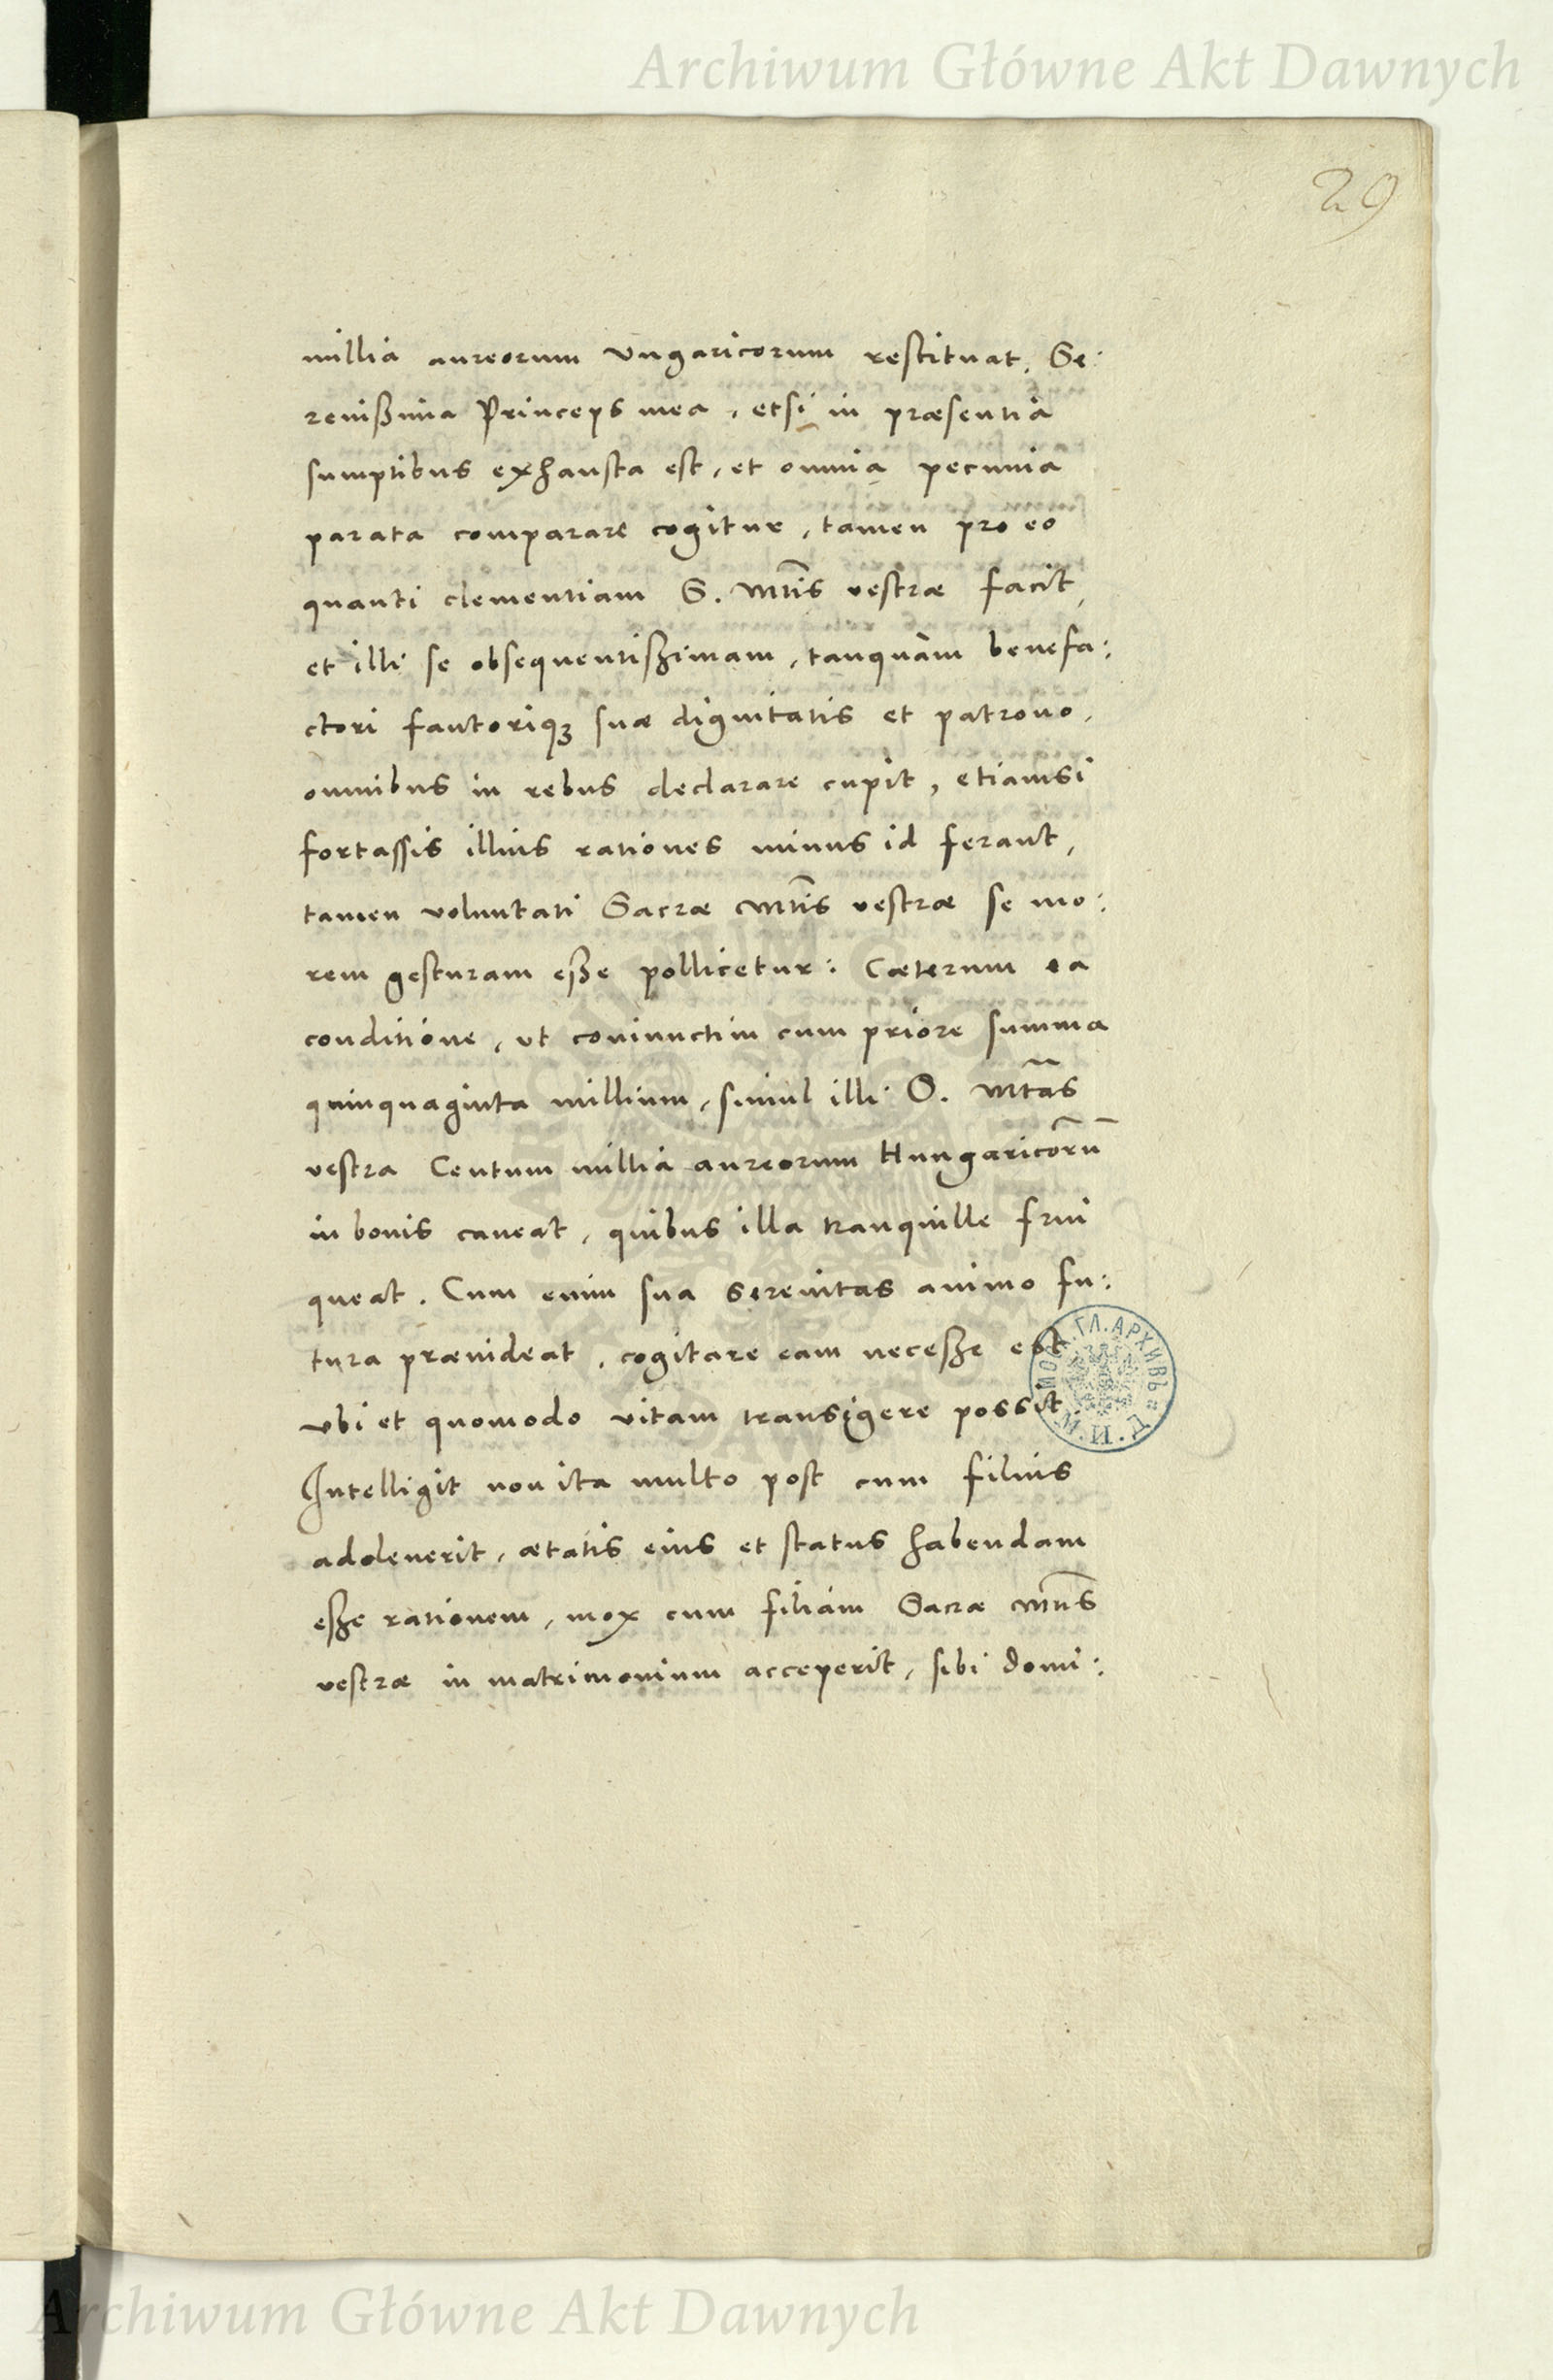 Archiwum Główne Akt Dawnych
29
millia aureorum Vngaricorum restituat. Se:
renißima Princeps mea, etsi in præsentia
sumptibus exhausta est, et omnia pecunia
parata comparare cogitur, tamen pro eo
quanti clementiam S. Mtis vestræ facit,
et illi se obsequentißimam, tanquam benefa:
ctori fautoriqꝫ suæ dignitatis et patrono,
omnibus in rebus declarare cupit, etiamsi
fortassis illius rationes minus id ferant,
tamen voluntati Sacræ Mtis vestræ se mo:
rem gesturam eße pollicetur: Cæterum ea
conditione, vt coniunctim cum priore summa
quinquaginta millium, simul illi S. Mtas
vestra Centum millia aureorum Hungaricorũ
in bonis caueat, quibus illa tranquille frui
queat. Cum enim sua serenitas animo fu:
tura præuideat, cogitare eam neceße est
vbi et quomodo vitam transigere possit.
Intelligit non ita multo post cum filius
adoleuerit, ætatis eius et status habendam
eße rationem, mox cum filiam Sacræ Mtis
vestræ in matrimonium acceperit, sibi domi:
ГЛ. АРХИВЪ
Archiwum Główne Akt Dawnych